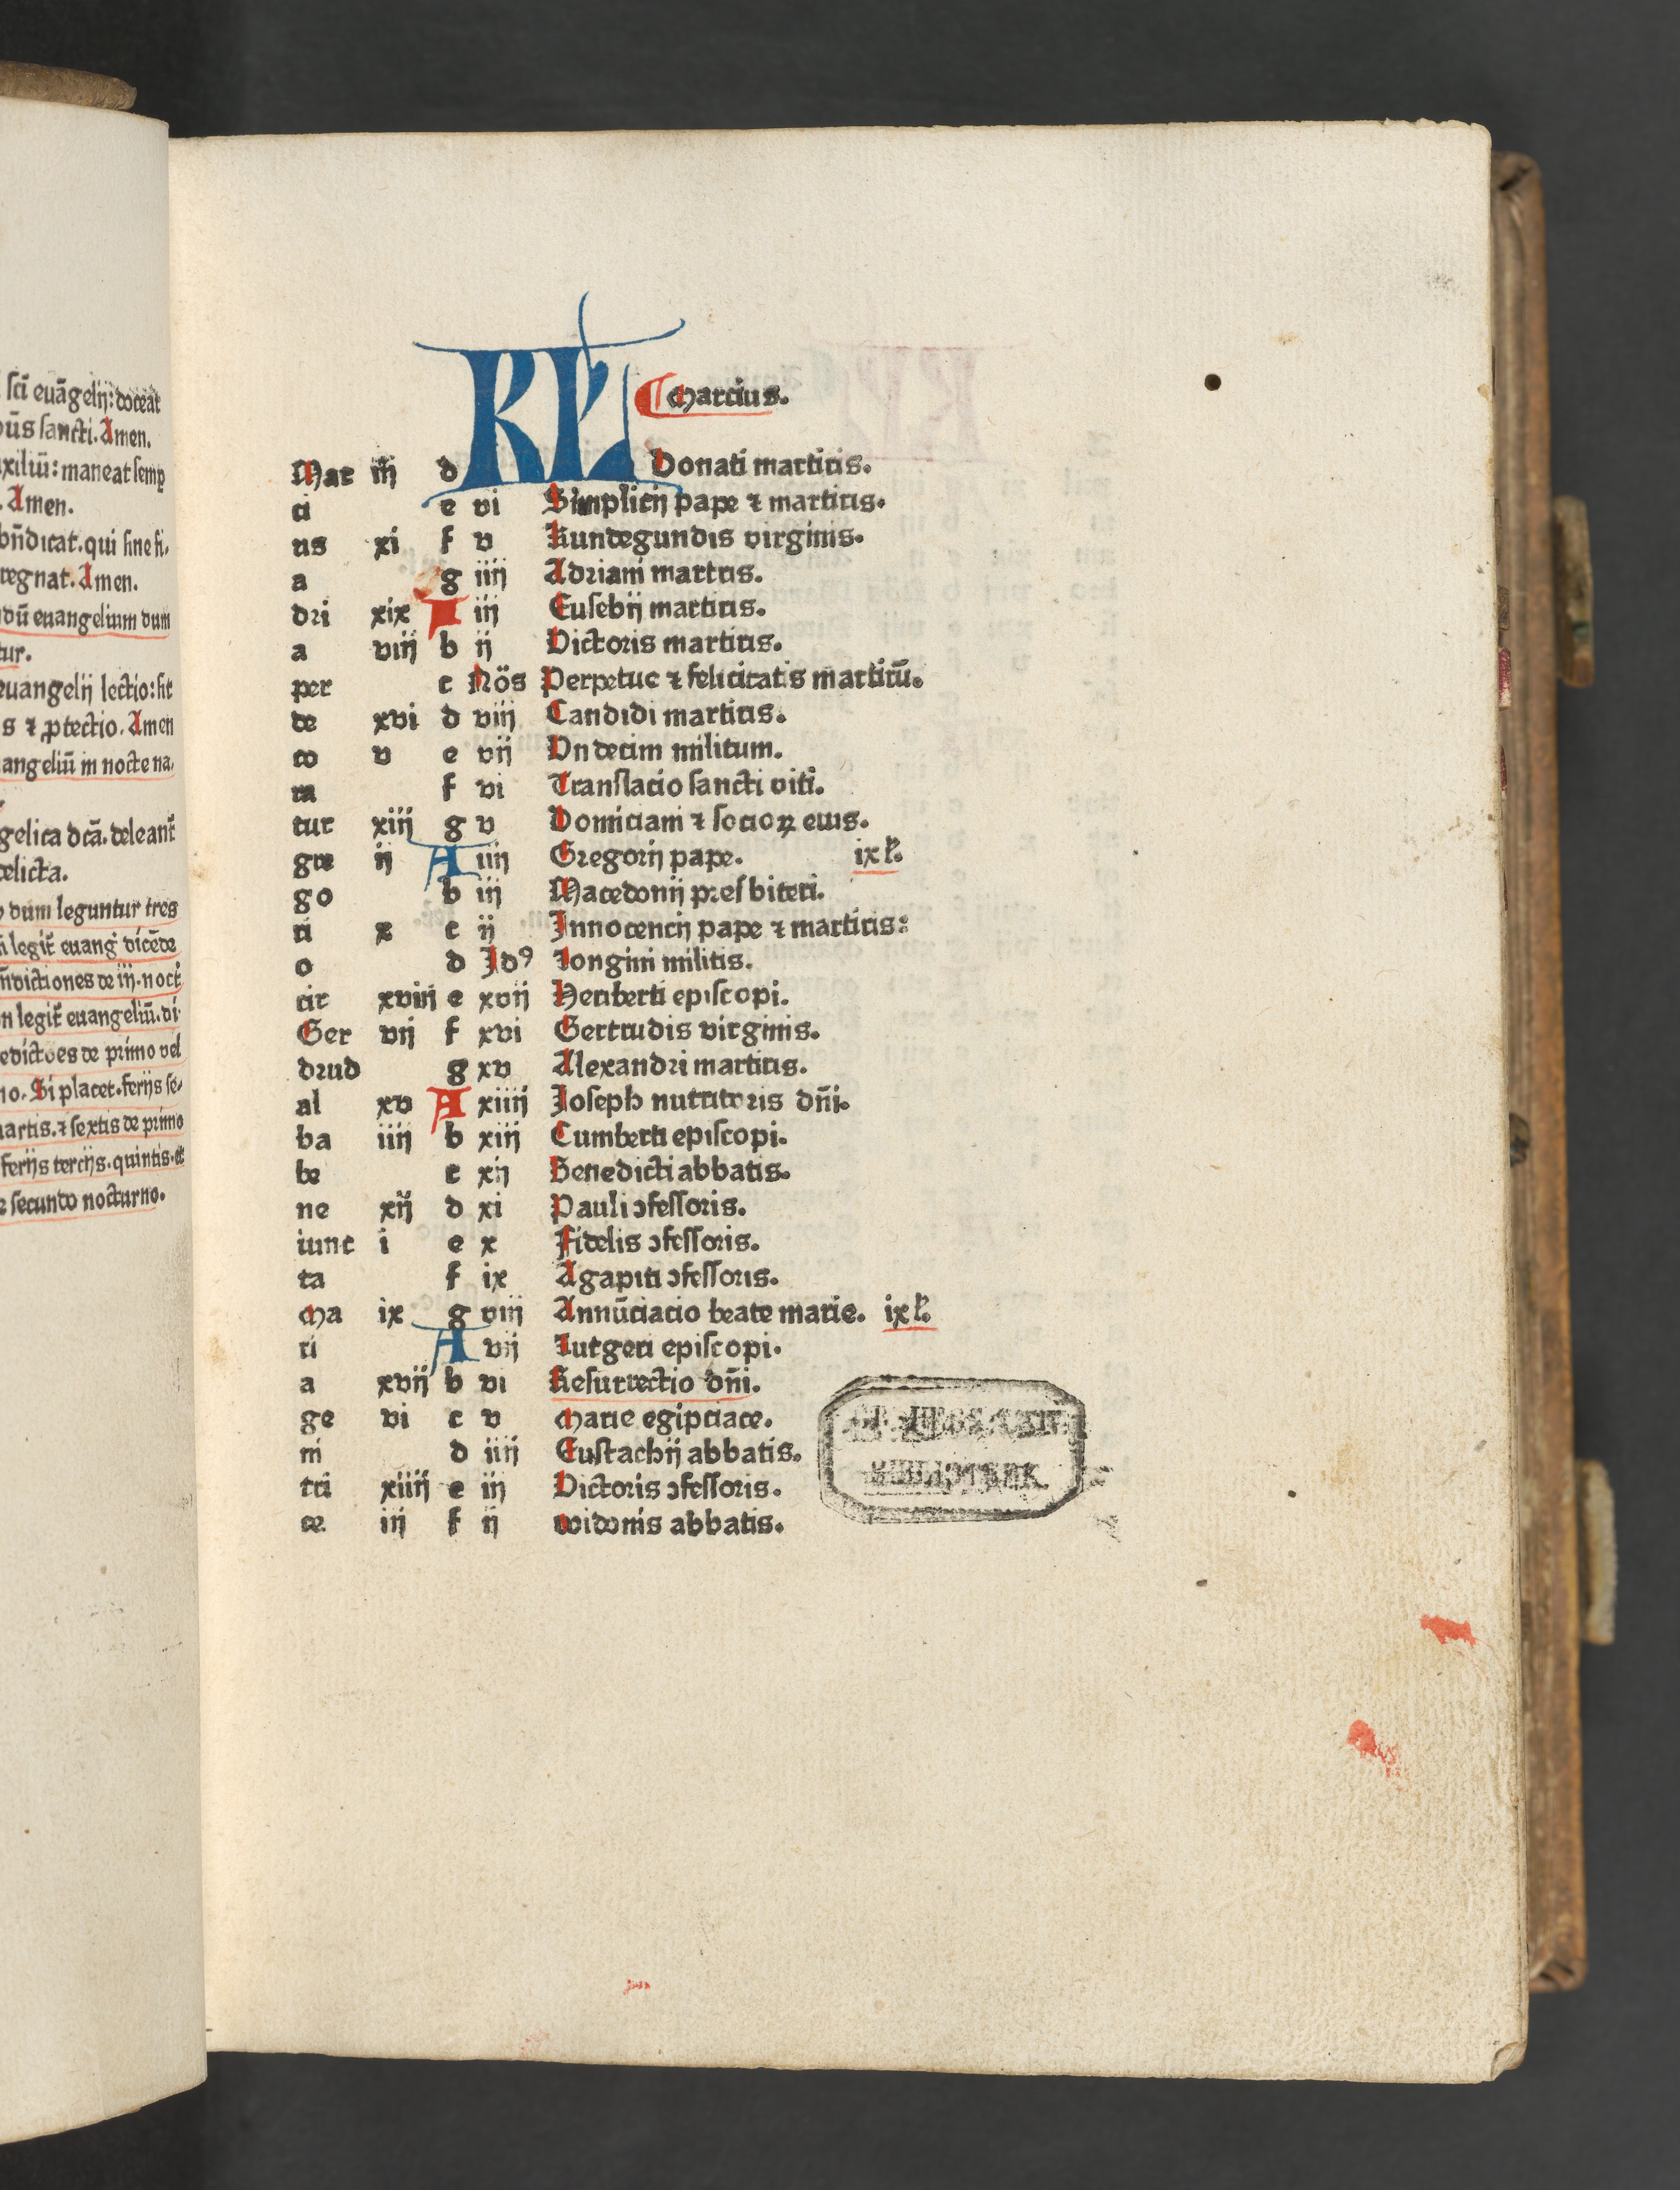 sci euāgelij: doceat
ūs sancti. Amen.
xiliū: maneat semp
. Amen.
bn̄dicat. qui sine fi,
regnat. Amen.
dū euangelium dum
tur.
euangelij lectio: sit
s ⁊ ꝓtectio. Amen
angeliū in nocte na,
gelica dcā. deleant̄
elicta.
dum leguntur tres
legit̄ euang̍ dicēde
n̄dictiones de iij. noct̍
n legit̄ euangeliū. di
edictōes de primo vel
no. Si placet. ferijs se,
martis. ⁊ sextis de primo
ferijs tercijs. quintis. et
secundo nocturno.
KL Marcius.
Mar iij d Donati martiris.
ci e vi Simplicij pape ⁊ martiris.
us xi f v Kundegundis virginis.
a g iiij Adriani martris.
dri xix A iij Eusebij martiris.
a viij b ij Victoris martiris.
per c Nōs Perpetue ⁊ felicitatis martirū.
de xvi d viij Candidi martiris.
co v e vij Vndecim militum.
ra f vi Translacio sancti viti.
tur xiij g v Domiciani ⁊ socioꝝ eius.
gre ij A iiij Gregorij pape. ix l̄.
go b iij Macedonij presbiteri.
ri x c ij Innocencij pape ⁊ martiris:
o d Idꝰ Longini militis.
cir xviij e xvij Heriberti episcopi.
Ger vij f xvi Gertrudis virginis.
drud g xv Alexandri martiris.
al xv A xiiij Joseph nutritoris dn̄i.
ba iiij b xiij Cumberti episcopi.
be c xij Benedicti abbatis.
ne xij d xi Pauli ↄfessoris.
iunc i e x Fidelis ↄfessoris.
ta f ix Agapiti ↄfessoris.
Ma ix g viij Annūciacio beate marie. ix l̄.
ri A vij Lutgeri episcopi.
a xvij b vi Resurrectio dn̄i.
ge vi c v Marie egipciace.
ni d iiij Eustachij abbatis.
tri xiiij e iij Victoris ↄfessoris.
ce iij f ij Widonis abbatis.
BIBLIOTHEK